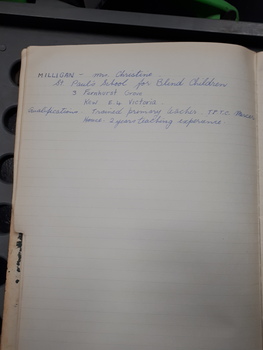 MILLIGAN - Mrs Christine
St Paul's School for Blind Children
3 Fernhurst Grove
Kew E.4 Victoria.
Qualifications: Trained primary teacher T.P.T.C.
2 years teaching experience